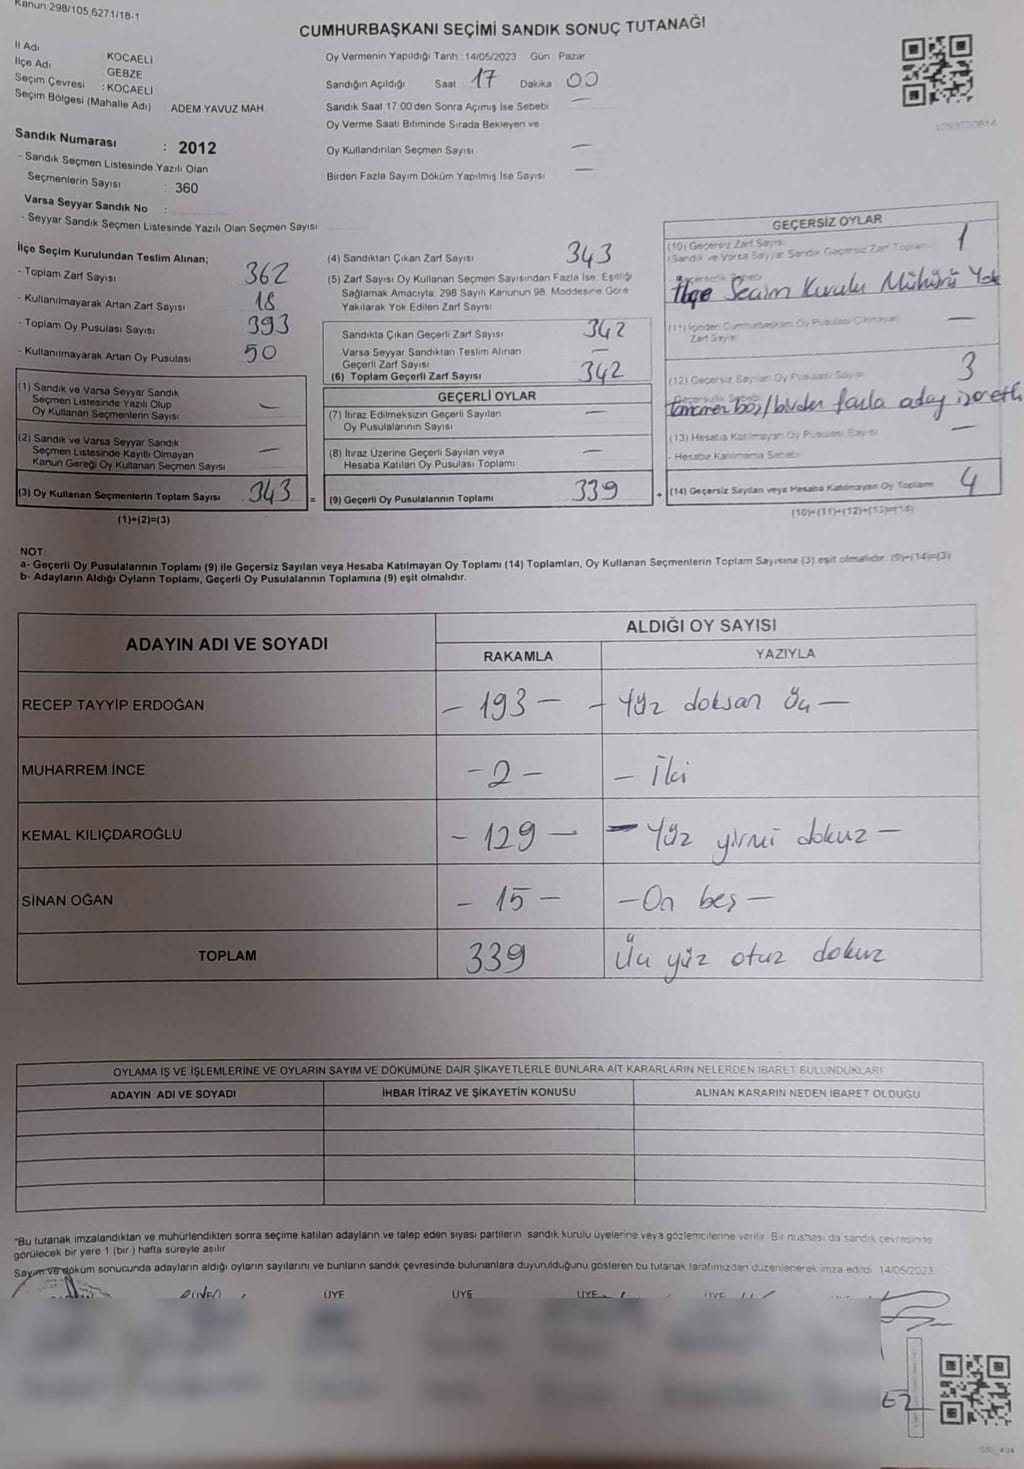 Kanun:298/105,6271/18-1
CUMHURBAŞKANI SEÇİMİ SANDIK SONUÇ TUTANAĞI
İl Adı KOCAELİ
İlçe Adı : GEBZE
Seçim Çevresi : KOCAELİ
Seçim Bölgesi (Mahalle Adı) : ADEM YAVUZ MAH
Sandık Numarası : 2012
- Sandık Seçmen Listesinde Yazılı Olan
Seçmenlerin Sayısı : 360
Varsa Seyyar Sandık No :
- Seyyar Sandık Seçmen Listesinde Yazılı Olan Seçmen Sayısı
Oy Vermenin Yapıldığı Tarih : 14/05/2023 Gün : Pazar
Sandığın Açıldığı Saat 17 Dakika 00
Sandık Saat 17:00 den Sonra Açımış İse Sebebi —
Oy Verme Saati Bitiminde Sırada Bekleyen ve
Oy Kullandırılan Seçmen Sayısı —
Birden Fazla Sayım Döküm Yapılmış İse Sayısı —
İlçe Seçim Kurulundan Teslim Alınan;
- Toplam Zarf Sayısı 362
- Kullanılmayarak Artan Zarf Sayısı 18
- Toplam Oy Pusulası Sayısı 393
- Kullanılmayarak Artan Oy Pusulası 50
(1) Sandık ve Varsa Seyyar Sandık
Seçmen Listesinde Yazılı Olup
Oy Kullanan Seçmenlerin Sayısı —
(2) Sandık ve Varsa Seyyar Sandık
Seçmen Listesinde Kayıtlı Olmayan
Kanun Gereği Oy Kullanan Seçmen Sayısı —
(3) Oy Kullanan Seçmenlerin Toplam Sayısı 343 =
(1)+(2)=(3)
(4) Sandıktan Çıkan Zarf Sayısı 343
(5) Zarf Sayısı Oy Kullanan Seçmen Sayısından Fazla İse, Eşitliği
Sağlamak Amacıyla; 298 Sayılı Kanunun 98. Maddesine Göre
Yakılarak Yok Edilen Zarf Sayısı
Sandıkta Çıkan Geçerli Zarf Sayısı 342
Varsa Seyyar Sandıktan Teslim Alınan
Geçerli Zarf Sayısı —
(6) Toplam Geçerli Zarf Sayısı 342
GEÇERLİ OYLAR
(7) İtiraz Edilmeksizin Geçerli Sayılan
Oy Pusulalarının Sayısı —
(8) İtiraz Üzerine Geçerli Sayılan veya
Hesaba Katılan Oy Pusulası Toplamı —
(9) Geçerli Oy Pusulalarının Toplamı 339 +
GEÇERSİZ OYLAR
(10) Geçersiz Zarf Sayısı 1
(Sandık ve Varsa Seyyar Sandık Geçersiz Zarf Toplamı)
Geçersizlik Sebebi
İlçe Seçim Kurulu Mühürü Yok
(11) İçinden Cumhurbaşkanı Oy Pusulası Çıkmayan
Zarf Sayısı —
(12) Geçersiz Sayılan Oy Pusulası Sayısı 3
Geçersizlik Sebebi
boş/birden fazla aday
(13) Hesaba Katılmayan Oy Pusulası Sayısı —
- Hesaba Katılmama Sebebi
(14) Geçersiz Sayılan veya Hesaba Katılmayan Oy Toplamı 4
(10)+(11)+(12)+(13)=(14)
NOT:
a- Geçerli Oy Pusulalarının Toplamı (9) ile Geçersiz Sayılan veya Hesaba Katılmayan Oy Toplamı (14) Toplamları, Oy Kullanan Seçmenlerin Toplam Sayısına (3) eşit olmalıdır. (9)+(14)=(3)
b- Adayların Aldığı Oyların Toplamı, Geçerli Oy Pusulalarının Toplamına (9) eşit olmalıdır.
ADAYIN ADI VE SOYADI ALDIĞI OY SAYISI
RAKAMLA YAZIYLA
RECEP TAYYİP ERDOĞAN - 193 - - Yüz doksan üç -
MUHARREM İNCE - 2 - - İki
KEMAL KILIÇDAROĞLU - 129 - - Yüz yirmi dokuz -
SİNAN OĞAN - 15 - - On beş -
TOPLAM 339 Üç yüz otuz dokuz
OYLAMA İŞ VE İŞLEMLERİNE VE OYLARIN SAYIM VE DÖKÜMÜNE DAİR ŞİKAYETLERLE BUNLARA AİT KARARLARIN NELERDEN İBARET BULUNDUKLARI
ADAYIN ADI VE SOYADI İHBAR İTİRAZ VE ŞİKAYETİN KONUSU ALINAN KARARIN NEDEN İBARET OLDUĞU
"Bu tutanak imzalandıktan ve mühürlendikten sonra seçime katılan adayların ve talep eden siyasi partilerin sandık kurulu üyelerine veya gözlemcilerine verilir. Bir nüshası da sandık çevresinde
görülecek bir yere 1 (bir ) hafta süreyle asılır
Sayım ve döküm sonucunda adayların aldığı oyların sayılarını ve bunların sandık çevresinde bulunanlara duyurulduğunu gösteren bu tutanak tarafımızdan düzenlenerek imza edildi. 14/05/2023
ÜYE ÜYE ÜYE ÜYE